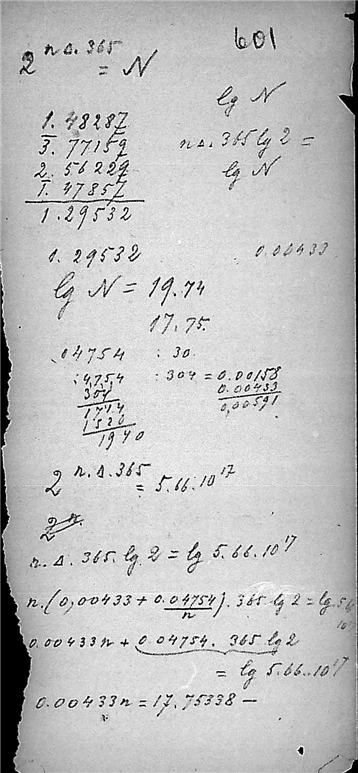 601
2^{n Δ. 365} = N
lg N
1. 48287
n Δ. 365 lg 2 =
3̄. 77159
lg N
2. 56229
1̄. 47857
1. 29532
1. 29532
0.00433
lg N = 19.74
17.75.
04754 : 30
: 4754 : 304 = 0.00158
304
0.00433
1714
0,00591
1520
1940
2^{n. Δ. 365} = 5.66.10^{17}
n. Δ. 365. lg 2 = lg 5.66.10^{17}
n. (0,00433 + 0.04754/n). 365 lg 2 = lg
0.00433n + 0.04754. 365 lg 2
= lg 5.66..10^{17}
0.00433n = 17.75338 —